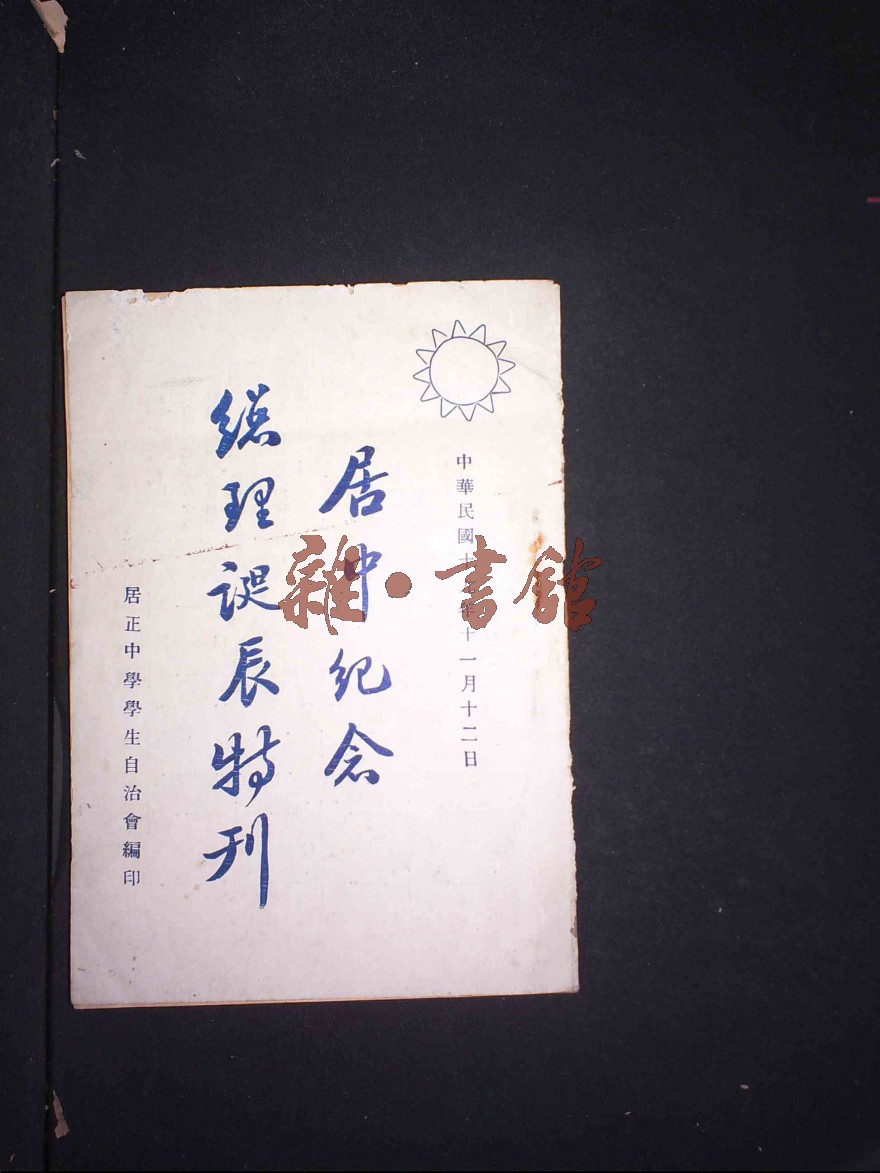 中華民國十年十一月十二日
居中紀念
總理誕辰特刊
居正中學學生自治會編印
雜·書館